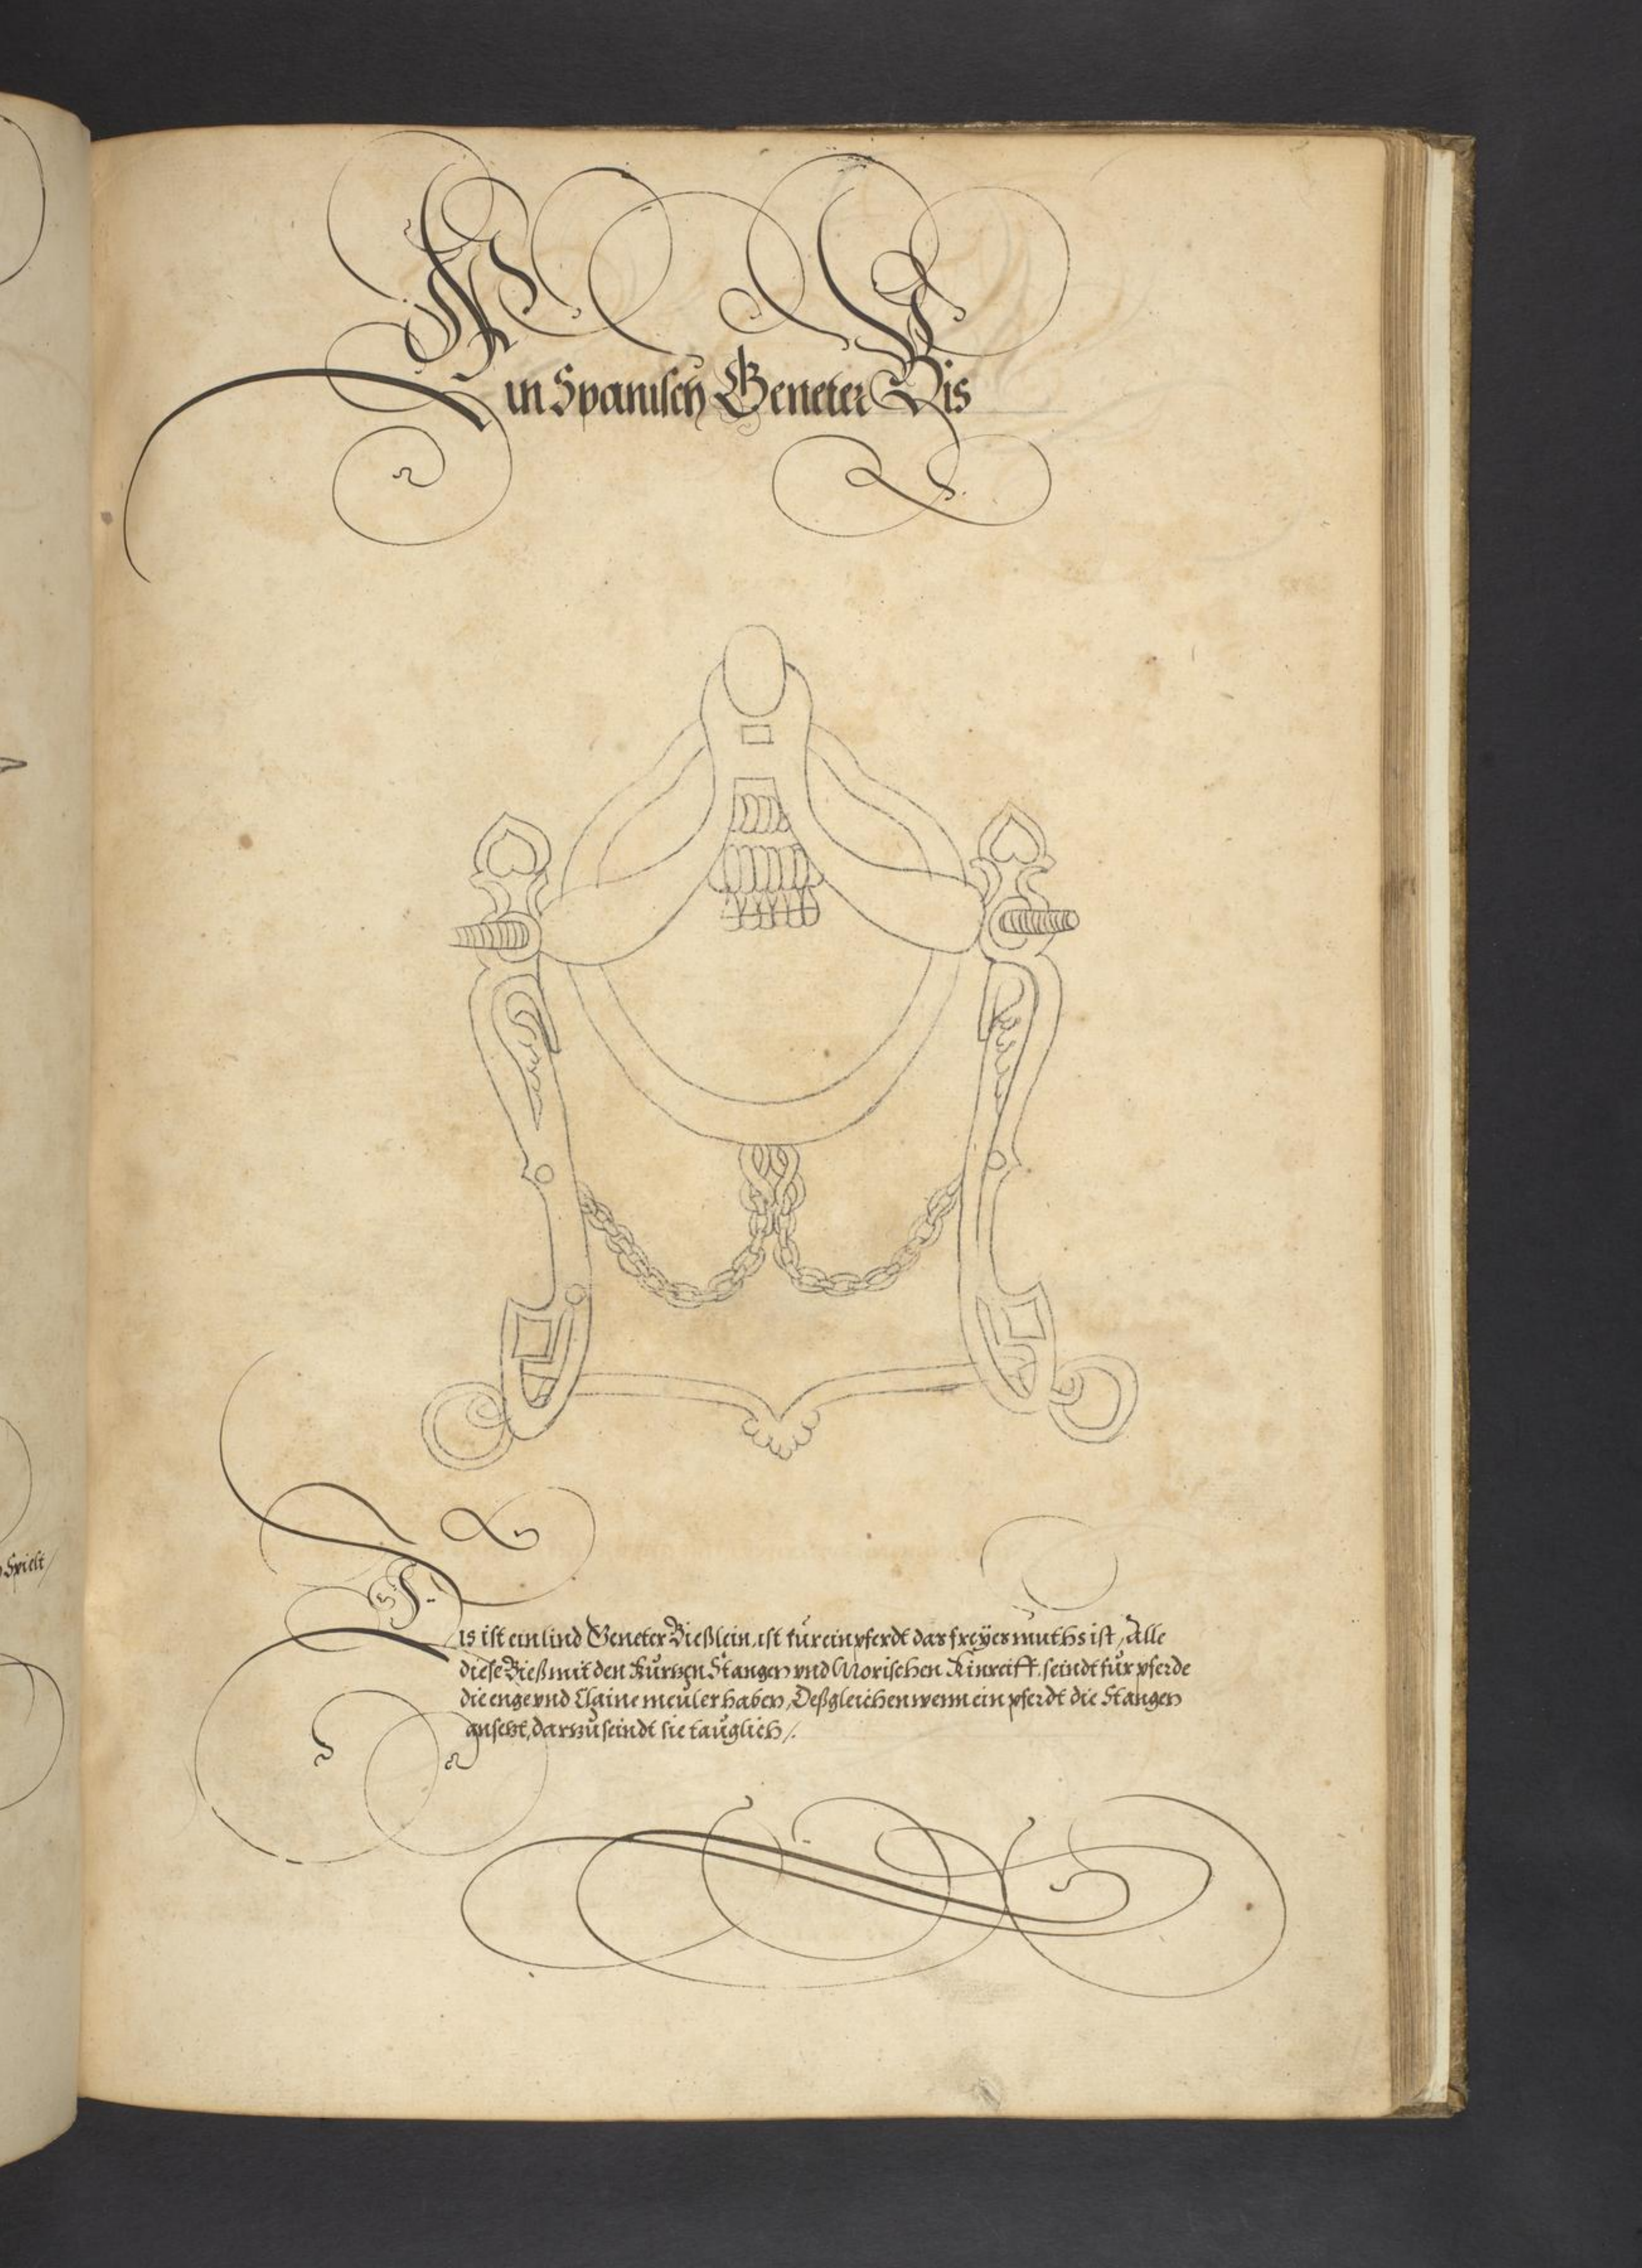 Ein Spanisch Geneter Bis
Dis ist ein lind Geneter Bießlein, ist für ein pferdt das freÿes muths ist, Alle
diese Bieß mit den Kurtzen Stangen vnd Morischen Kinreiff, seindt für pferde
die enge vnd Claine meuler haben, Deßgleichen wenn ein pferdt die Stangen
ansetzt, dartzu seindt sie tauglich /.
Spielt /